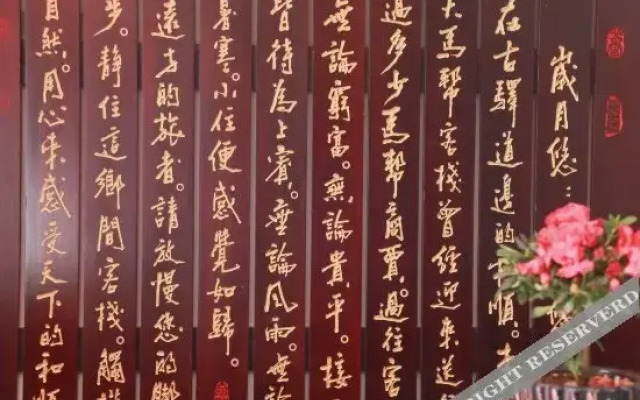 歲月悠:
在古驛道邊的和順。
大馬幫客棧曾經迎來送
過多少馬幫商賈。過往客
無論窮富。無論貴平。接
皆待為上賓。無論風雨。無論
暑寒。小住便感覺如歸。
遠方的旅者。請放慢您的腳
步。靜住這鄉間客棧。觸摸
自然。用心來感受天下的和順
RIGHT RESERVERD